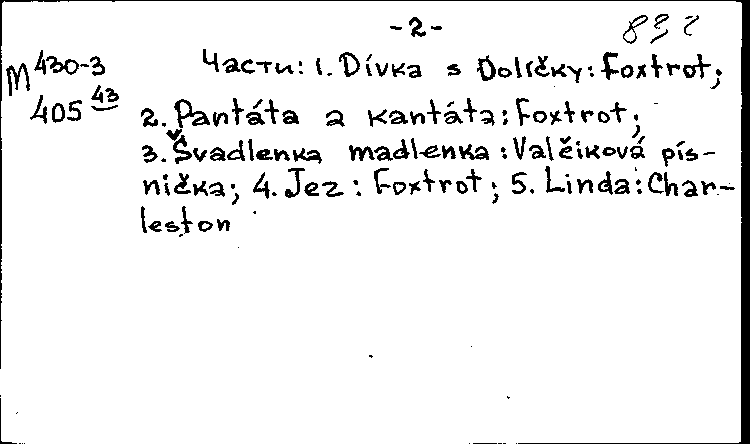 -2-
M 430-3
405 43
Части: 1. Dívka s Dolíčky: Foxtrot;
2. Pantáta a kantáta: Foxtrot;
3. Švadlenka madlenka: Valčiková pís-
nička; 4. Jez: Foxtrot; 5. Linda: Char-
leston